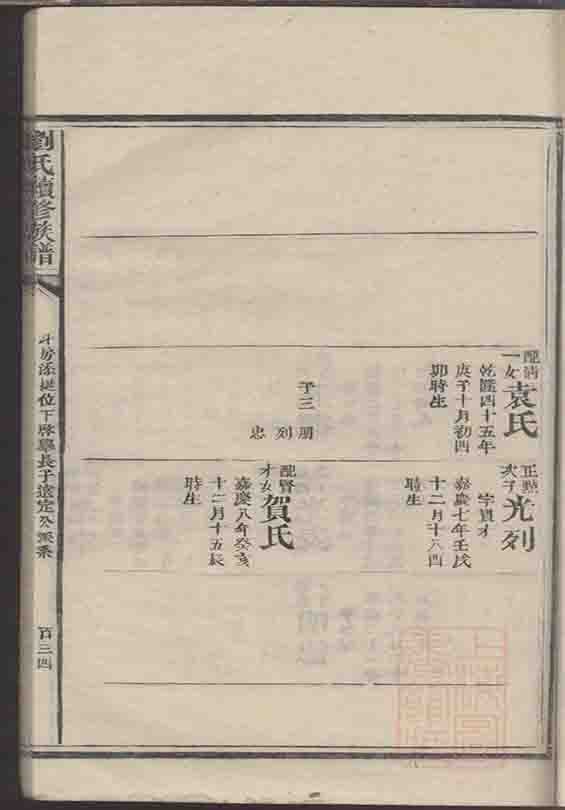 配清
一女
袁氏
乾隆四十五年
庚子十月初四
卯時生
子三
朋
列
忠
正點
次子
光列
字賢才
嘉慶七年壬戌
十二月十八酉
時生
配賢
才女
賀氏
嘉慶八年癸亥
十二月十五辰
時生
劉氏續修族譜
百三四